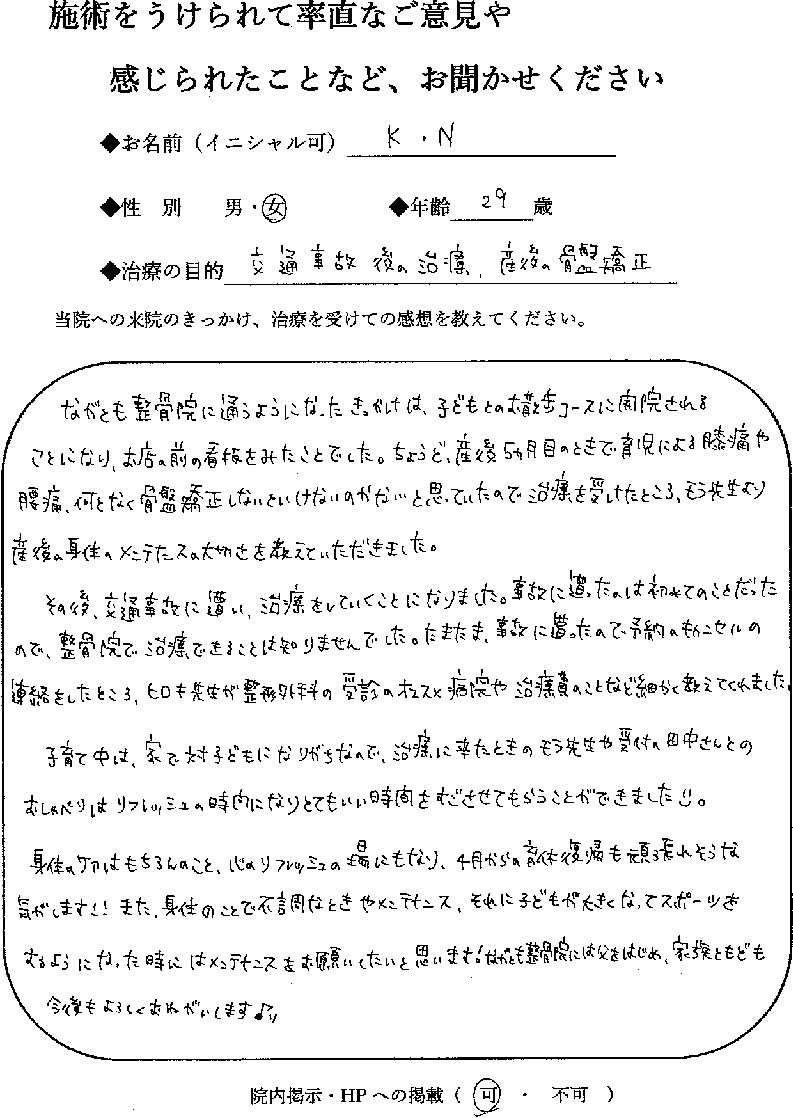 施術をうけられて率直なご意見や
感じられたことなど、お聞かせください
◆お名前（イニシャル可） K・N
◆性 別 男・女 ◆年齢 29 歳
◆治療の目的 交通事故後の治療、産後の骨盤矯正
当院への来院のきっかけ、治療を受けての感想を教えてください。
ながとも整骨院に通うようになったきっかけは、子どもとのお散歩コースに開院される
ことになり、お店の前の看板をみたことでした。ちょうど、産後5ヵ月目のときで育児による膝痛や
腰痛、何となく骨盤矯正しないといけないのかな…と思っていたので治療を受けたところ、もう先生より
産後の身体のメンテナンスの大切さを教えていただきました。
その後、交通事故に遭い、治療をしていくことになりました。事故に遭ったのは初めてのことだった
ので、整骨院で治療できることは知りませんでした。たまたま、事故に遭ったので予約のキャンセルの
連絡をしたところ、ヒロキ先生が整形外科の受診のオススメ病院や治療費のことなど細かく教えてくれました。
子育て中は、家で対子どもになりがちなので、治療に来たときのもう先生や受付の田中さんとの
おしゃべりはリフレッシュの時間になりとてもいい時間をすごさせてもらうことができました。
身体のケアはもちろんのこと、心のリフレッシュの場にもなり、4月からの育休復帰も頑張れそうな
気がします!! また、身体のことで不調なときやメンテナンス、それに子どもが大きくなってスポーツを
するようになった時にはメンテナンスをお願いしたいと思います!ながとも整骨院には父をはじめ、家族ともども
今後もよろしくおねがいします♪
院内掲示・HPへの掲載（ 可 ・ 不可 ）